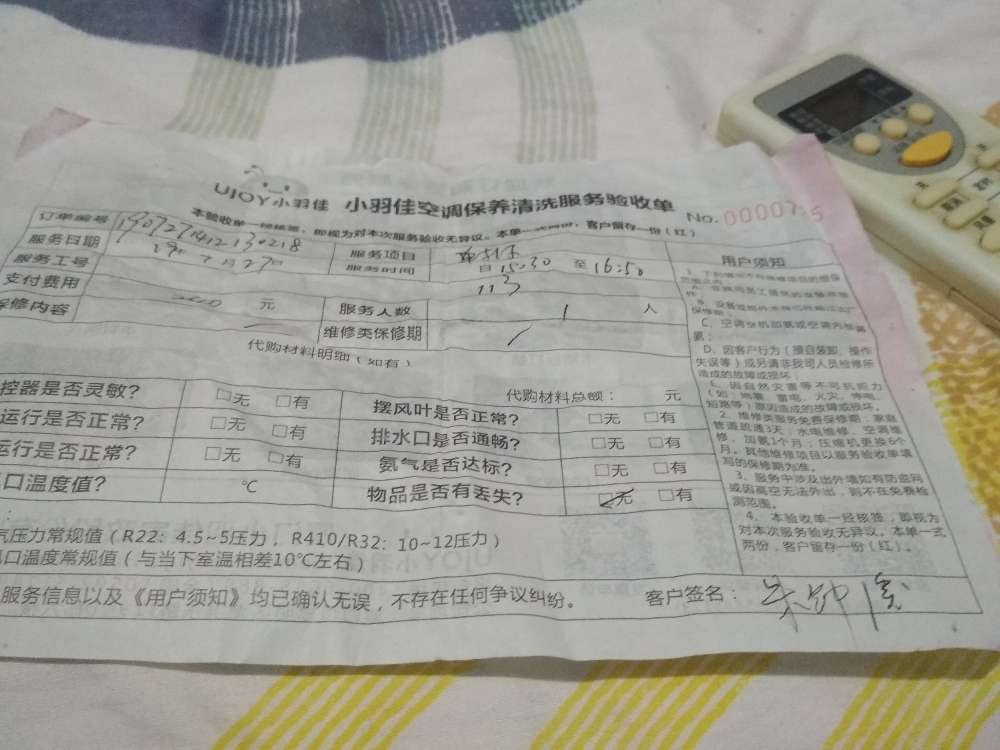 UJOY小羽佳 小羽佳空调保养清洗服务验收单
No.
本验收单一经核签，即视为对本次服务验收无异议。本单一式两份，客户留存一份（红）
订单编号
服务日期 19年7月27日 服务项目
服务工号 服务时间 日 15:30 至 16:50
113
支付费用 元 服务人数 1 人
保修内容 维修类保修期 /
代购材料明细（如有）
代购材料总额： 元
控器是否灵敏？ □无 □有 摆风叶是否正常？ □无 □有
运行是否正常？ □无 □有 排水口是否通畅？ □无 □有
运行是否正常？ □无 □有 氨气是否达标？ □无 □有
口温度值？ ℃ 物品是否有丢失？ □无 □有
气压力常规值（R22：4.5~5压力，R410/R32：10~12压力）
口温度常规值（与当下室温相差10℃左右）
服务信息以及《用户须知》均已确认无误，不存在任何争议纠纷。 客户签名：
用户须知
C、空调空机加氨或空调内
D、因客户行为（擅自装卸、操作
失误等）或另请非我司人员检修所
造成的故障或损坏
E、因自然灾害等不可抗能力
（如：地震、雷电、火灾、停电、
短路等）原因造成的故障或损坏。
2、维修类服务免费保修期：家庭
管道疏通3天，水电维修、空调维
修、加氨1个月；压缩机更换6个
月。其他维修项目以服务验收单填
写的保修期为准。
3、服务中涉及出外墙如有防盗网
或因高空无法外出，则不在免费检
测范围。
4、本验收单一经核签，即视为
对本次服务验收无异议。本单一式
两份，客户留存一份（红）。